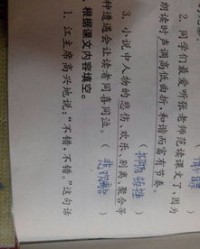 2、同学们最爱听张老师范读课文了，因为
朗读时声调高低曲折，和谐而富有节奏。
3、小说中人物的悲伤、欢乐、别离、聚合等
种遭遇会让读者同喜同泣。（
根据课文内容填空。
1、江主席高兴地说：“不错，不错。”这句话